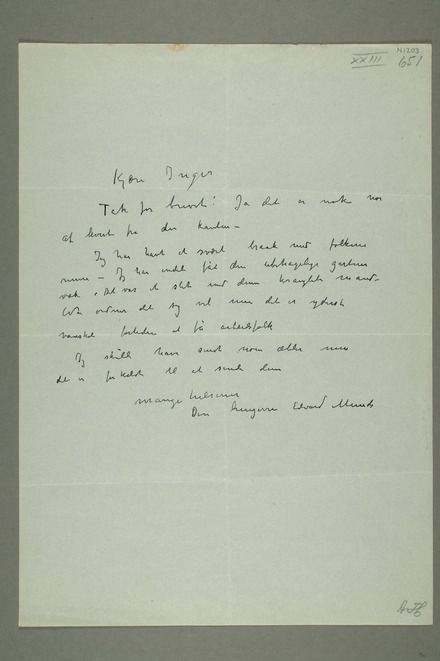 N1203
XXIII 651
Kjære Inger
Tak for brevet! Ja det er nok nor
at levert fra den kanten –
Jeg har havt et svært braak med folkene
mine – Jeg har endelig fåt den ubehagelige gartner
væk. Det var et slit med denne
ordner det sig vel men det er ytterst
vanskel fortiden at få arbeidsfolk
Jeg skulde have sendt noen æbler men
det er for koldt til at sende dem
Mange hilsener
Din hengivne Edvard Munch